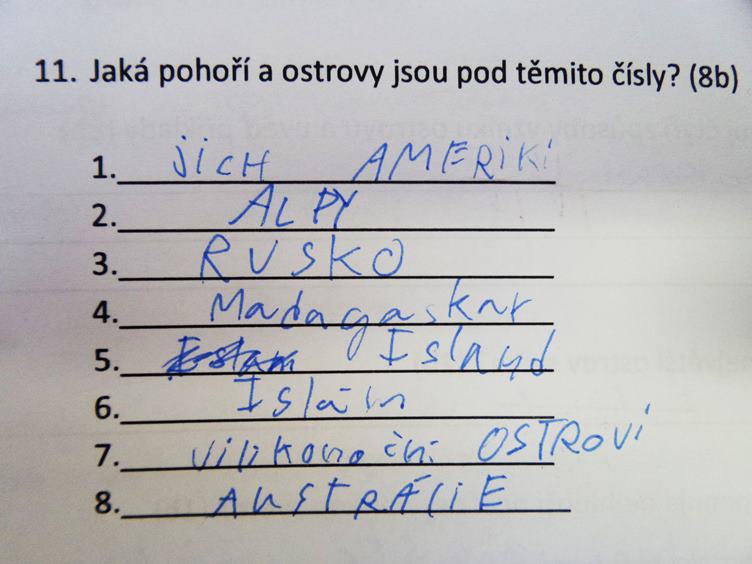 11. Jaká pohoří a ostrovy jsou pod těmito čísly? (8b)
1. JiCH AMERIKi
2. ALPY
3. RUSKO
4. Madagaskar
5. Island
6. Islám
7. Vilikonoční OSTROVi
8. AUSTRÁliE